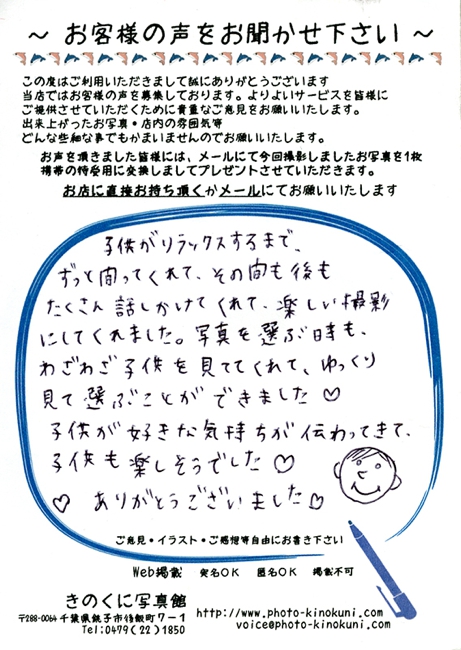 ～ お客様の声をお聞かせ下さい ～
この度はご利用いただきまして誠にありがとうございます
当店ではお客様の声を募集しております。よりよいサービスを皆様に
ご提供させていただくために貴重なご意見をお願いいたします。
出来上がったお写真・店内の雰囲気等
どんな些細な事でもかまいませんのでお願いいたします。
お声を頂きました皆様には、メールにて今回撮影しましたお写真を1枚
携帯の待受用に変換しましてプレゼントさせていただきます。
お店に直接お持ち頂くかメールにてお願いいたします
子供がリラックスするまで、
ずっと間ってくれて、その間も後も
たくさん話しかけてくれて、楽しい撮影
にしてくれました。写真を選ぶ時も、
わざわざ子供を見ててくれて、ゆっくり
見て選ぶことができました♡
子供が好きな気持ちが伝わってきて、
子供も楽しそうでした♡
♡ ありがとうございました♡
ご意見・イラスト・ご感想等自由にお書き下さい
Web掲載 実名OK 匿名OK 掲載不可
きのくに写真館
〒288-0064 千葉県銚子市修飯町7-1
Tel:0479(22)1850
http://www.photo-kinokuni.com/
voice@photo-kinokuni.com